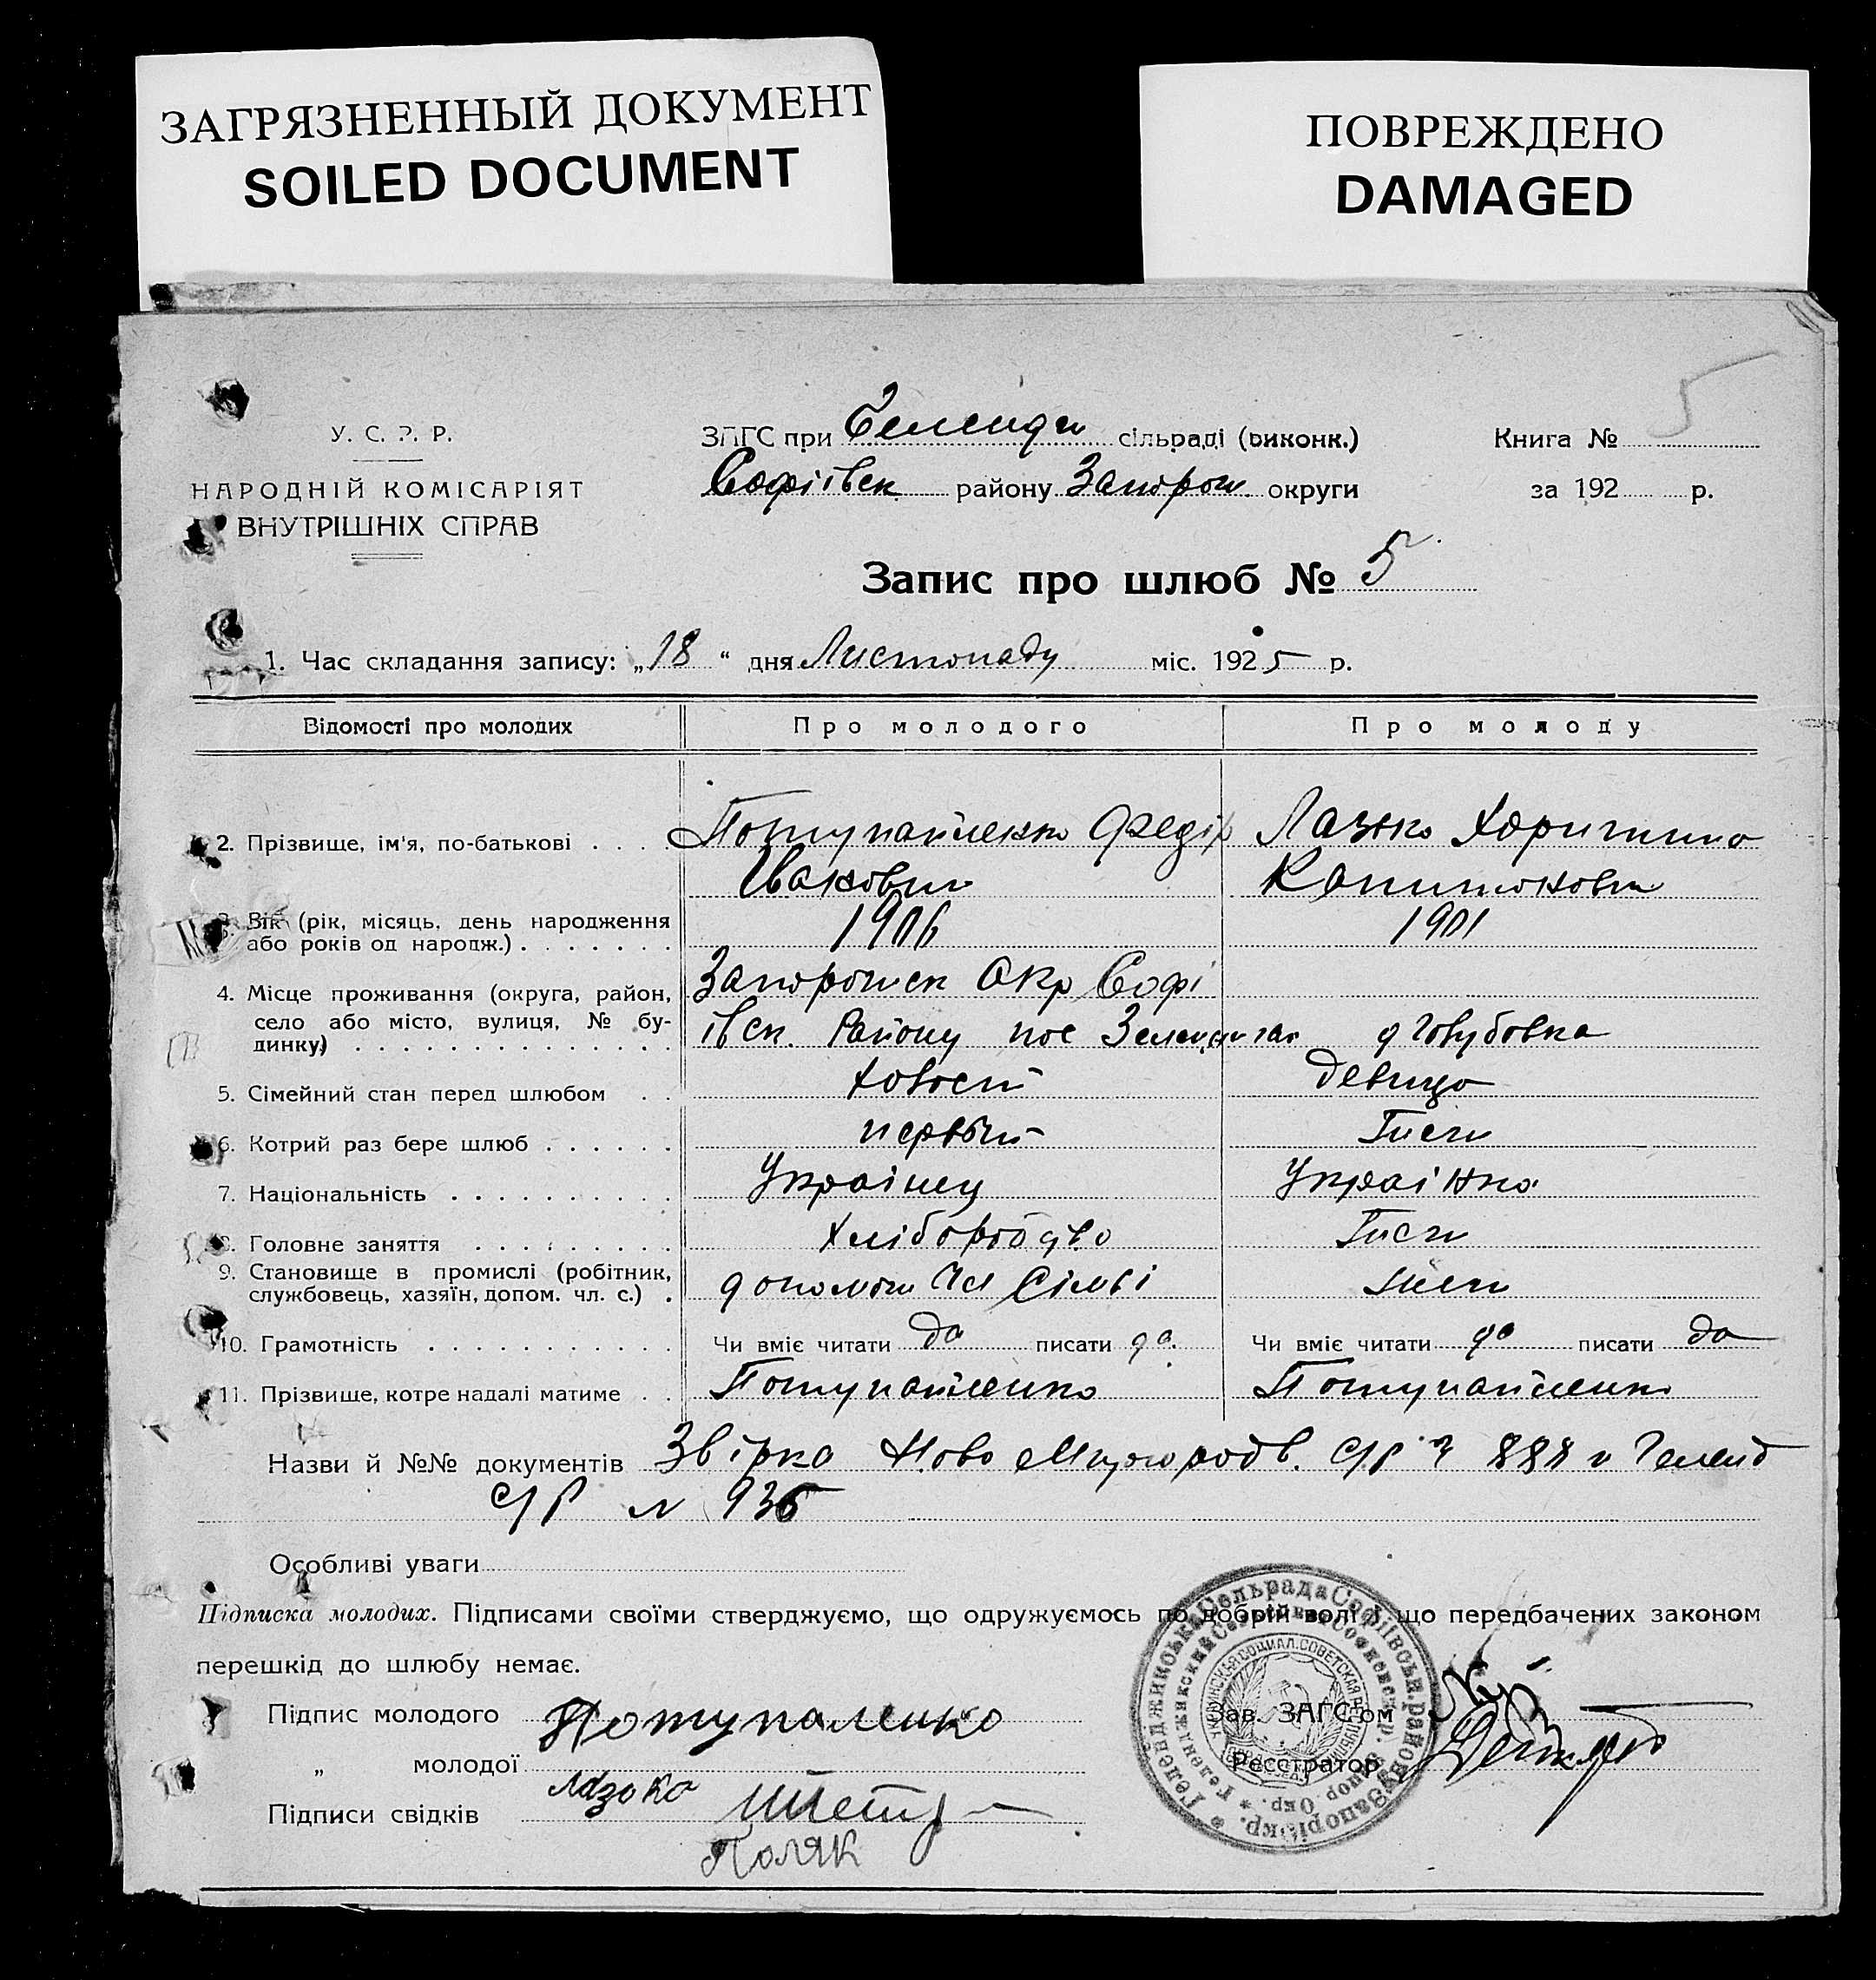 ЗАГРЯЗНЕННЫЙ ДОКУМЕНТ
SOILED DOCUMENT
ПОВРЕЖДЕНО
DAMAGED
5
У. С. Р. Р.
НАРОДНІЙ КОМІСАРІЯТ
ВНУТРІШНІХ СПРАВ
ЗАГС при сільраді (виконк.)
Софіівск району Запорож округи
Книга №
за 192 р.
Запис про шлюб № 5
1. Час складання запису: „18“ дня Листопаду міс. 1925 р.
Відомості про молодих Про молодого Про молоду
2. Прізвище, ім'я, по-батькові . . . . Потупайленко Федір Лазько
Іванович
3. Вік (рік, місяць, день народження 1906 1901
або років од народж.) . . . . . . .
4. Місце проживання (округа, район, Запорожск Окр Софі
село або місто, вулиця, № бу- івск. Району пос
динку) . . . . . . . . . . . . . . д Голубовка
5. Сімейний стан перед шлюбом . . девица
6. Котрий раз бере шлюб . . . . . . первый
7. Національність . . . . . . . . . . Українец Українка
8. Головне заняття . . . . . . . . . Хлібороб
9. Становище в промислі (робітник,
службовець, хазяїн, допом. чл. с.) . допомож чл Сімьі
10. Грамотність . . . . . . . . . . . Чи вміє читати да писати да. Чи вміє читати да писати да
11. Прізвище, котре надалі матиме . . Потупайленко Потупайленко
Назви й №№ документів Ново 888 и
С/Р № 936
Особливі уваги
Підписка молодих. Підписами своїми стверджуємо, що одружуємось по добрій волі і що передбачених законом
перешкід до шлюбу немає.
Підпис молодого Потупаленко
„ молодої
Підписи свідків
Поляк
Зав. ЗАГС'ом
Реєстратор